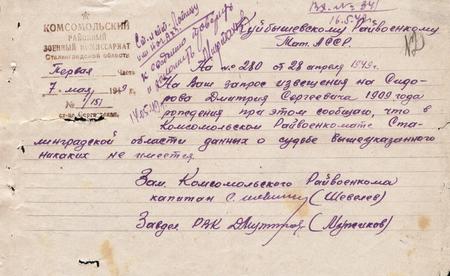 Вх. № 341
16.5.49г.
КОМСОМОЛЬСКИЙ
РАЙОННЫЙ
ВОЕННЫЙ КОМИССАРИАТ
Сталинградской области
Первая Часть
7 мая 1949 г.
№ 1/151
Куйбышевскому Райвоенкому
Тат. АССР.
На № 280 от 28 апреля 1949г.
На Ваш запрос извещения на Сидо-
рова Дмитрия Сергеевича 1909 года
рождения при этом сообщаю, что в
Комсомольском Райвоенкомате Ста-
линградской области данных о судьбе вышеуказанного
никаких не имеется.
Зам. Комсомольского Райвоенкома
капитан (Шевелев)
Завдел РВК